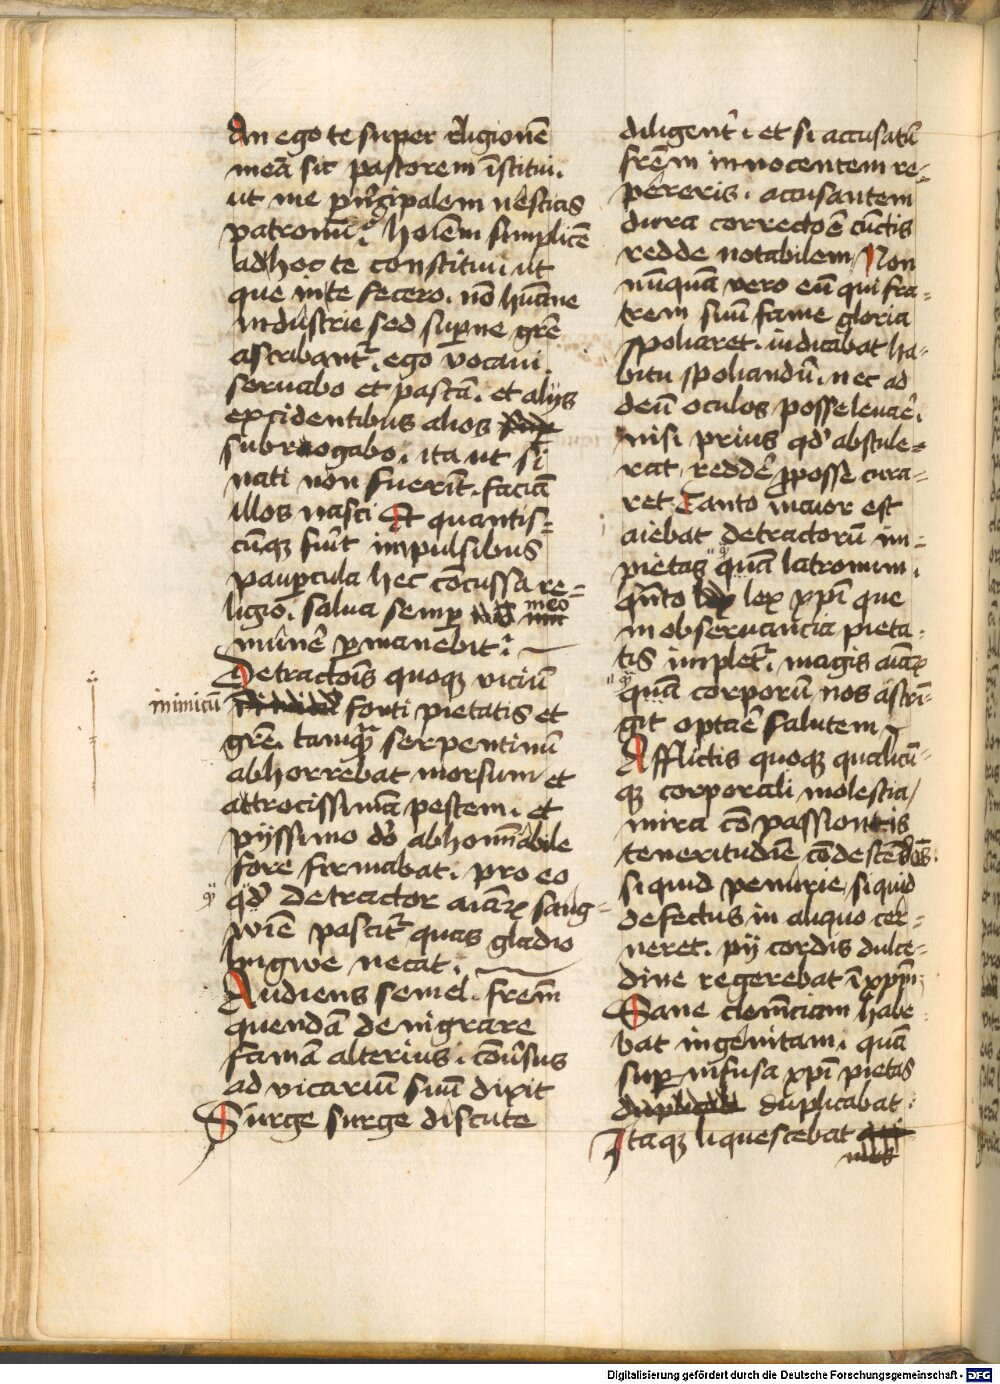 An ego te super r̄ligionē
meā sic pastorem īstitui.
ut me p̄ncipalem nescias
patronū. hoīem simplicē
ad hoc te constitui ut
que in te fecero. nō hūane
industrie sed sup̄ne grē
ascribant͛. ego vocaui
seruabo et pascā. et alijs
excidentibus alios
subrrogabo. ita ut si
nati non fuerīt. faciā
illos nasci Et quantis-
cūq; fuīt impulsibus
paup̄cula hec cōcussa re-
ligio. salua semp̲ meo
munē p̲manebit.
Detractoīs quoq; viciū
inimicū fonti pietatis et
grē. tamq̄ serpentinū
abhorrebat morsum et
attrocissimā pestem. et
pijssimo dō abhominabile
fore firmabat. pro eo
qd̄ detractor aīaꝝ sang-
wīe pascit͛ quas gladio
lingwe necat.
Audiens semel. frēm
quendā denigrare
famā alterius. cōu̓sus
ad vicariū suū dixit
Surge surge discute
diligent̓. et si accusatū
frēm innocentem re-
pereris. accusantem
dura correctōe cūctis
redde notabilem Non
nūquā vero eū qui fra-
trem suū fame gloria
spoliaret. iudicabat ha-
bitu spoliandū. nec ad
deū oculos posse leuar̄e.
nisi prius qd̓ abstule-
rat redder̄e p̲posse cura-
ret Tanto maior est
aiebat detractorū im-
pietas quā latronum.
q̄nto lex xp̄i que
in obseruancia pieta-
tis implet͛. magis aīaꝝ
quā corporū nos astrī-
git optar̄e salutem
Afflictis quoq; qualicū-
q; corporali molestia
mira cōpassionis
teneritudīe cōdescēdēs.
si quid penurie si quid
defectus in aliquo cer-
neret. pij cordis dulce-
dine regerebat ī xp̄m.
Sane clemēciam habe-
bat ingenitam. quā
sup̲infusa xp̄i pietas
duplicabat.
Itaq; liquescebat